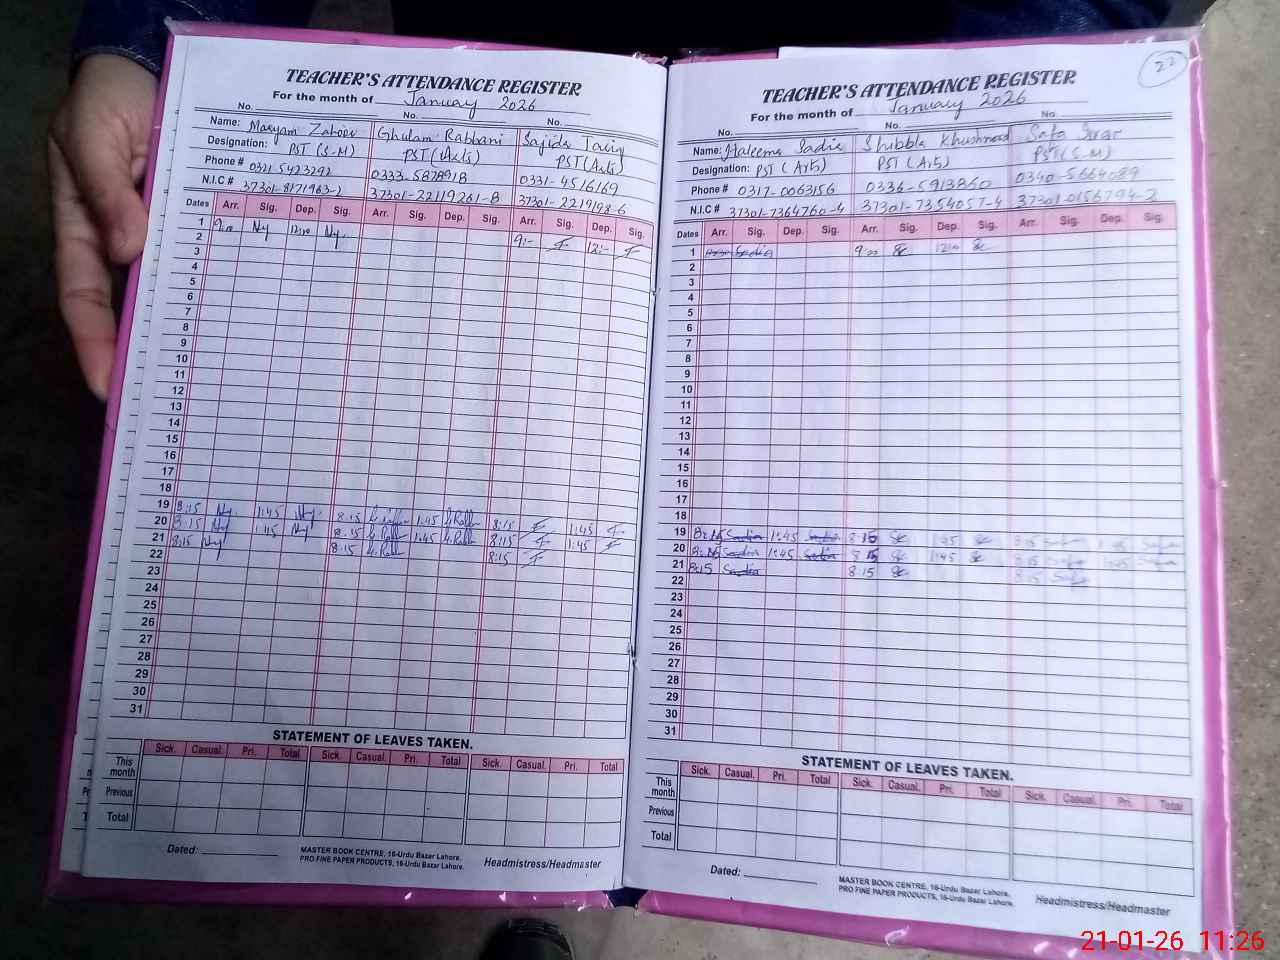 TEACHER'S ATTENDANCE REGISTER
For the month of January 2026
No. No. No.
Name: Maryam Zahoor Ghulam Rabbani Sajida
Designation: PST (S-M) PST (Arts) PST (Arts)
Phone # 0333-5828918 0331-4516169
N.I.C # 37301-22119261-8 37301-2219198-6
Dates Arr. Sig. Dep. Sig. Arr. Sig. Dep. Sig. Arr. Sig. Dep. Sig.
1 9:00 12:00
2 9:- 12:-
3
4
5
6
7
8
9
10
11
12
13
14
15
16
17
18
19 8:15 1:45 8:15 1:45 8:15 1:45
20 8:15 1:45 8:15 1:45 8:15 1:45
21 8:15 8:15 8:15
22
23
24
25
26
27
28
29
30
31
STATEMENT OF LEAVES TAKEN.
Sick. Casual. Pri. Total Sick. Casual. Pri. Total Sick. Casual. Pri. Total
This month
Previous
Total
Dated:
MASTER BOOK CENTRE, 16-Urdu Bazar Lahore.
PRO FINE PAPER PRODUCTS, 16-Urdu Bazar Lahore.
Headmistress/Headmaster
22
TEACHER'S ATTENDANCE REGISTER
For the month of January 2026
No. No. No.
Name: Haleema Sadia Shibbla Khushnood Safa
Designation: PST (Arts) PST (Arts) PST (S-M)
Phone # 0317-0063156 0336-5913860 0340-5664089
N.I.C # 37301-7364760-4 37301-7354057-4 37301-0156794-2
Dates Arr. Sig. Dep. Sig. Arr. Sig. Dep. Sig. Arr. Sig. Dep. Sig.
1 Sadia 9:00 12:00
2
3
4
5
6
7
8
9
10
11
12
13
14
15
16
17
18
19 8:15 Sadia 1:45 Sadia 8:15 1:45 8:15 Safa
20 8:15 Sadia 1:45 Sadia 8:15 1:45 8:15 Safa
21 8:15 Sadia 8:15 8:15 Safa
22
23
24
25
26
27
28
29
30
31
STATEMENT OF LEAVES TAKEN.
Sick. Casual. Pri. Total Sick. Casual. Pri. Total Sick. Casual. Pri. Total
This month
Previous
Total
Dated:
MASTER BOOK CENTRE, 16-Urdu Bazar Lahore.
PRO FINE PAPER PRODUCTS, 16-Urdu Bazar Lahore.
Headmistress/Headmaster
21-01-26 11:26